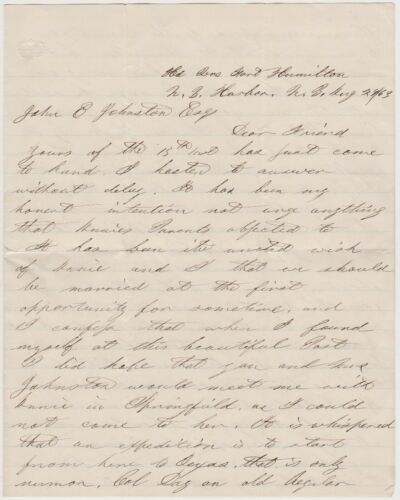 Hd Qrs Fort Hamilton
N. Y. Harbor, N. Y. Aug 29/63
John E Johnston Esq
Dear Friend
Yours of the 13th inst has just come
to hand. I hasten to answer
without delay. It has been my
honest intention not urge anything
that Annies Parents objected to
It has been the united wish
of Annie and I that we should
be married at the first
opportunity for sometime, and
I confess that when I found
myself at this beautiful Post
I did hope that you and Mrs
Johnston would meet me with
Annie in Springfield, as I could
not come to her. It is whispered
that an expedition is to start
from here to Texas, that is only
rumor, Col Day an old Regular